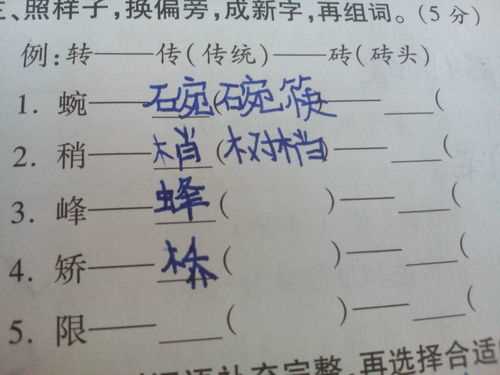 三、照样子,换偏旁,成新字,再组词。(5分)
例:转——传(传统)——砖(砖头)
1. 蜿——碗(碗筷)——___(
2. 稍——梢(树梢)——___(
3. 峰——蜂( )——___(
4. 矫——桥( )——___(
5. 限——___( )——___(
补充完整,再选择合适